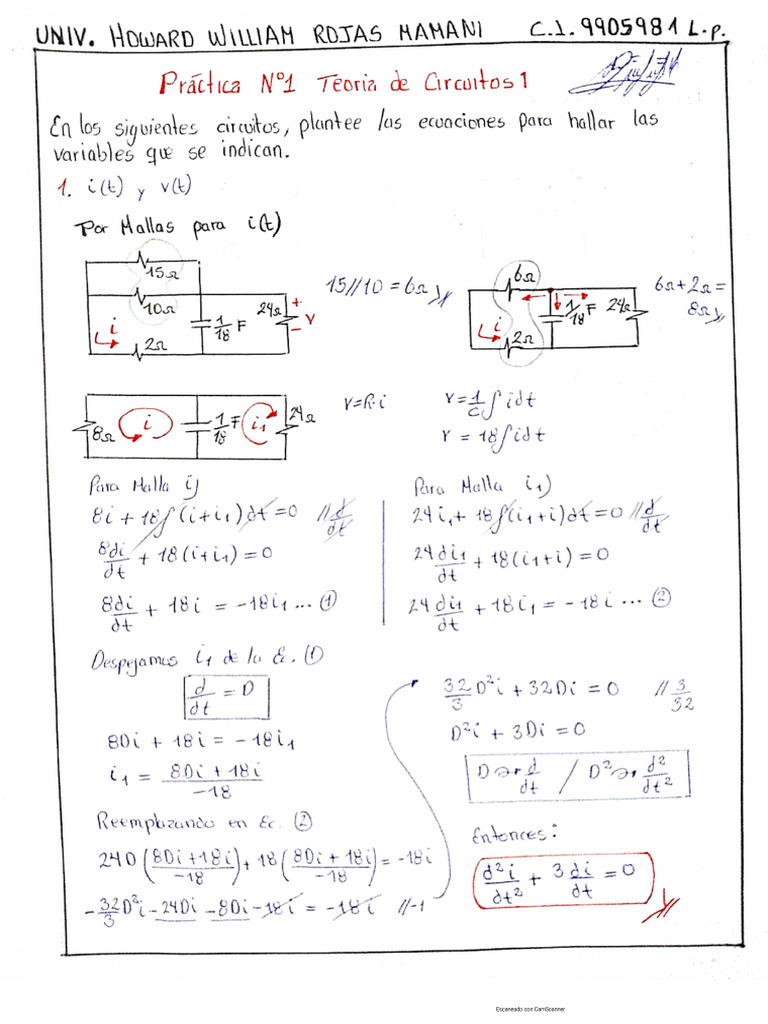 UNIV. HOWARD WILLIAM ROJAS MAMANI C.I. 9905981 L.P.
Práctica Nº1 Teoría de Circuitos 1
En los siguientes circuitos, plantee las ecuaciones para hallar las
variables que se indican.
1. i(t) y v(t)
Por Mallas para i(t)
15Ω
10Ω
2Ω
i
1/18 F
24Ω
+
V
-
15//10 = 6Ω
6Ω
i
2Ω
1/18 F
24Ω
6Ω+2Ω=
8Ω
8Ω
i
1/18 F
i1
24Ω
V=R·i
V=1/C ∫idt
V = 18∫idt
Para Malla i)
8i + 18∫(i+i1)dt=0 //d/dt
8di/dt + 18(i+i1)=0
8di/dt + 18i = -18i1 ... ①
Para Malla i1)
24i1 + 18∫(i1+i)dt=0 //d/dt
24di1/dt + 18(i1+i)=0
24di1/dt + 18i1 = -18i ... ②
Despejamos i1 de la Ec. ①
d/dt = D
8Di + 18i = -18i1
i1 = 8Di + 18i/-18
Reemplazando en Ec. ②
24D(8Di+18i/-18) + 18(8Di+18i/-18) = -18i
-32/3D²i-24Di-8Di-18i = -18i //-1
32/3D²i + 32Di = 0 //3/32
D²i + 3Di = 0
D d/dt / D² d²/dt²
Entonces:
d²i/dt² + 3di/dt = 0
Escaneado con CamScanner